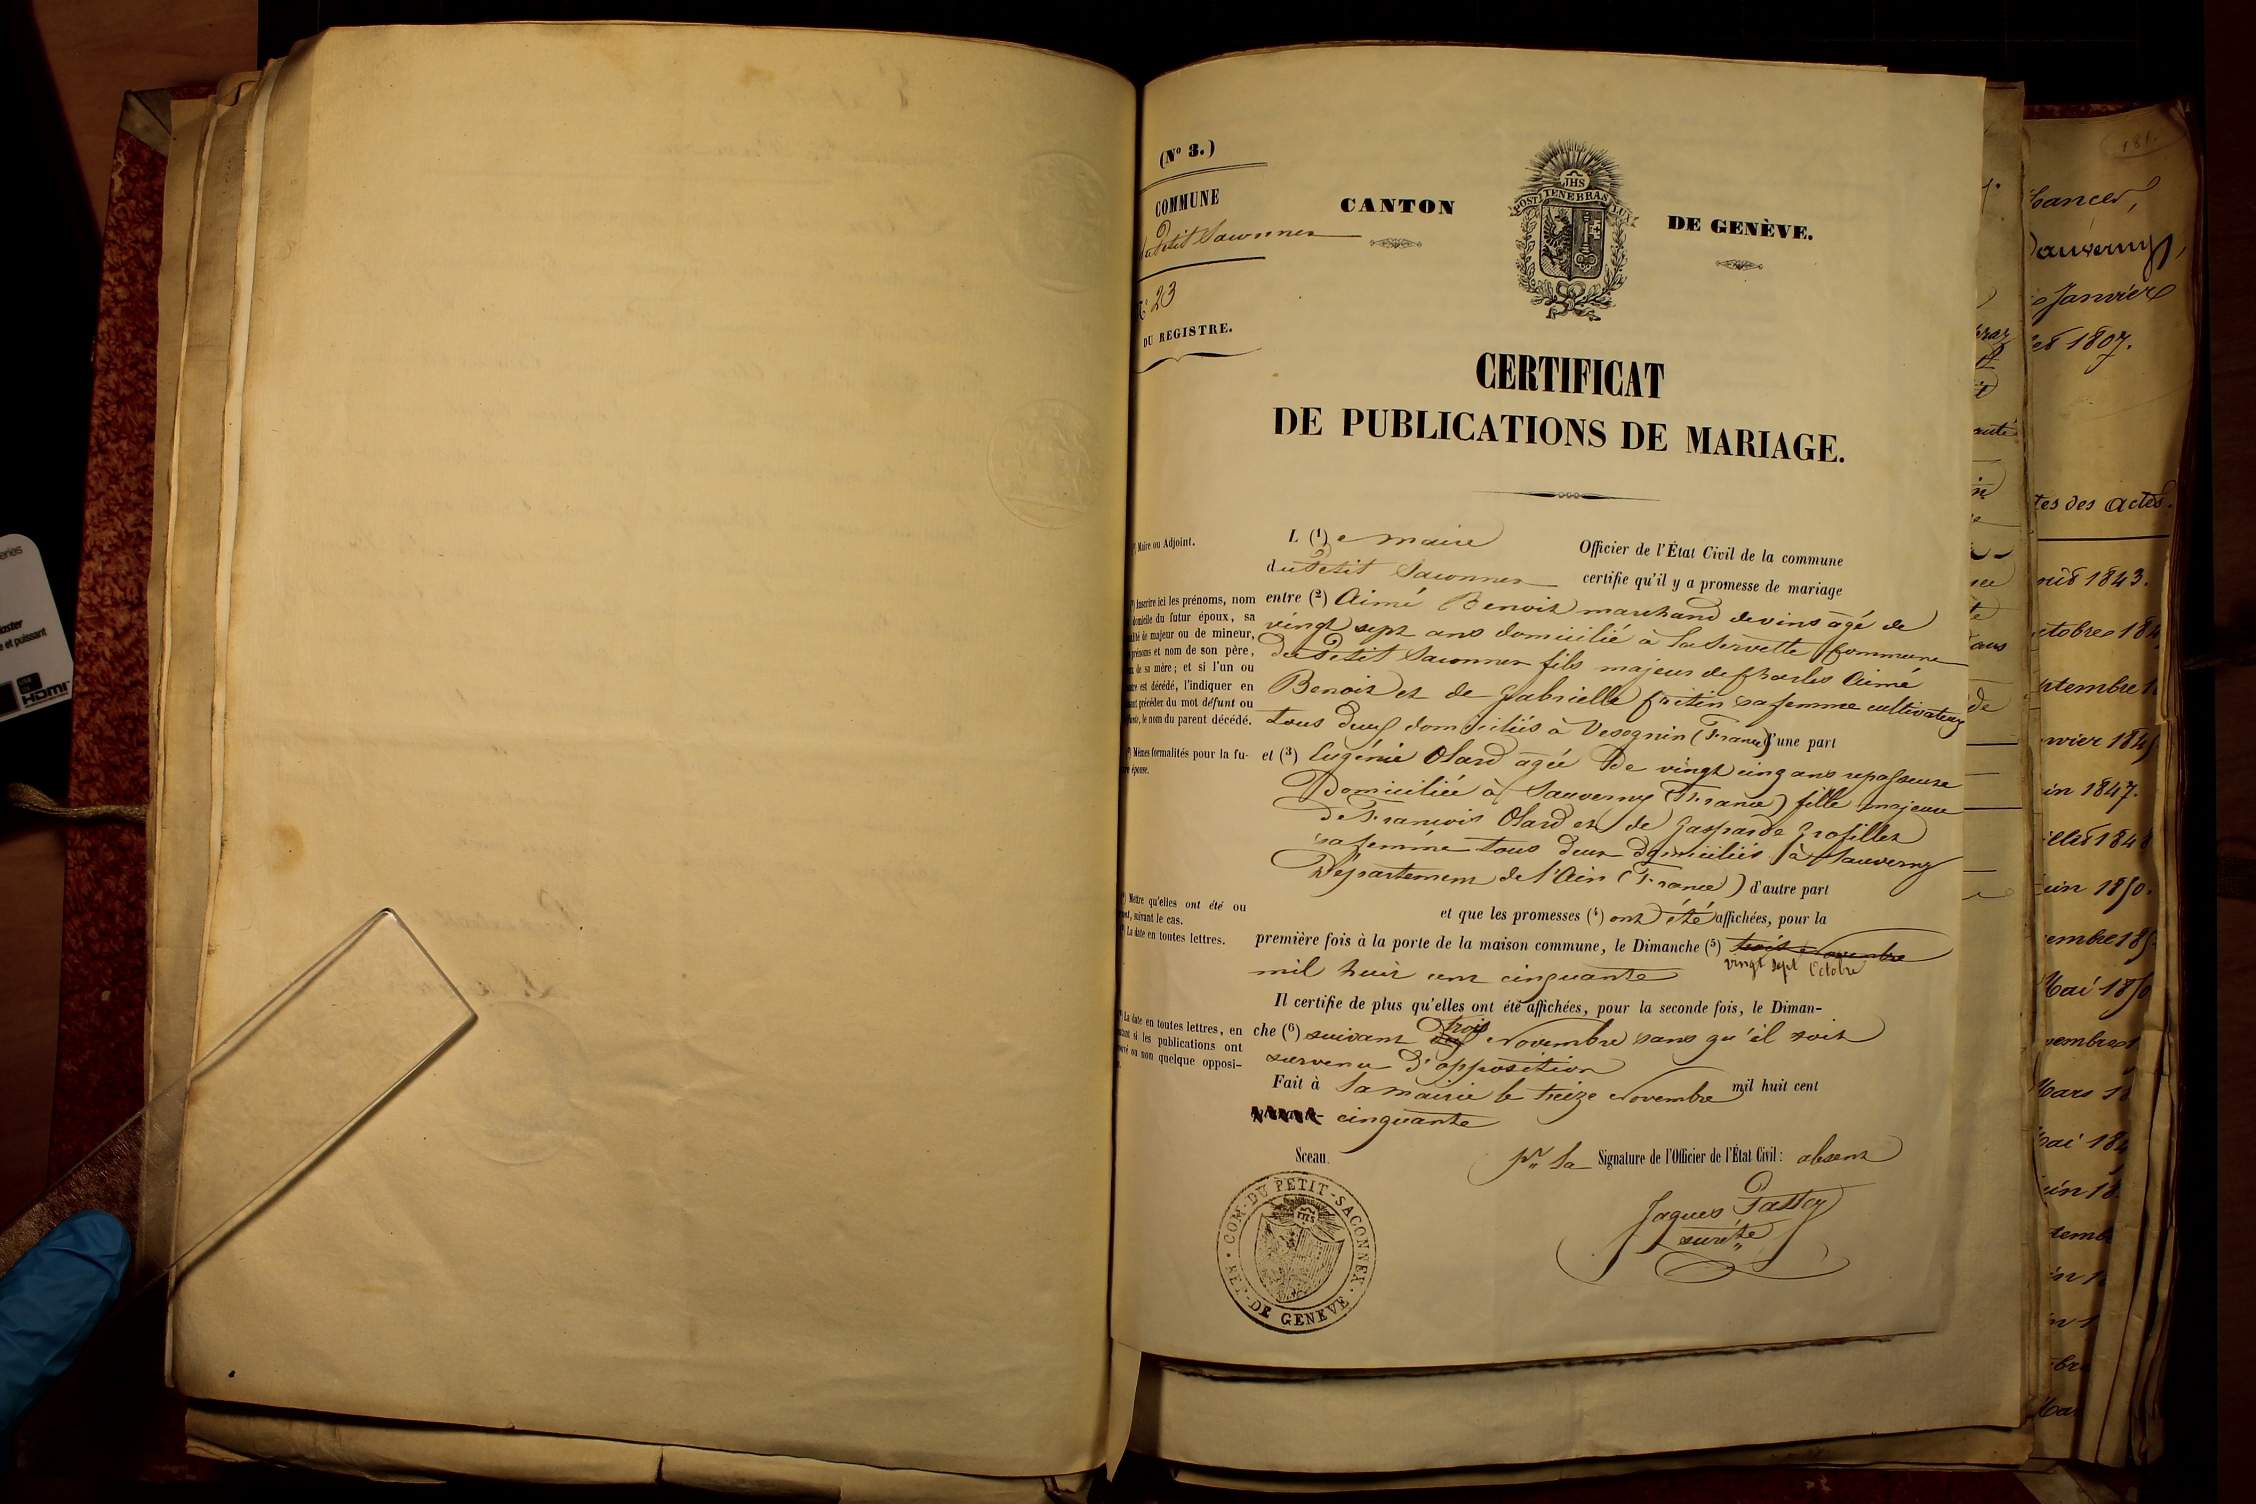 (N° 3.)
COMMUNE
du Petit Saconnex
N° 23
DU REGISTRE.
CANTON
DE GENÈVE.
JHS
POST TENEBRAS LUX
CERTIFICAT
DE PUBLICATIONS DE MARIAGE.
Maire ou Adjoint.
L (1) e maire Officier de l'État Civil de la commune
du Petit Saconnex certifie qu'il y a promesse de mariage
Inscrire ici les prénoms, nom
domicile du futur époux, sa
qualité de majeur ou de mineur,
prénoms et nom de son père,
de sa mère; et si l'un ou
est décédé, l'indiquer en
précéder du mot défunt ou
le nom du parent décédé.
entre (2) Aimé Benoit marchand de vins âgé de
vingt sept ans domicilié à la Servette Commune
du Petit Saconnex fils majeur de Charles Aimé
Benoit et de Gabrielle Critin sa femme cultivateurs
tous deux domiciliés à Vesegnin (France) d'une part
Mêmes formalités pour la fu-
épouse.
et (3) Eugénie Olard agée de vingt cinq ans repasseuse
Domiciliée à Sauverny (France) fille majeure
de François Olard et de Gasparde Grosfillex
sa femme tous deux domiciliés à Sauverny
Département de l'Ain (France) d'autre part
Mettre qu'elles ont été ou
suivant le cas.
La date en toutes lettres.
et que les promesses (4) ont été affichées, pour la
première fois à la porte de la maison commune, le Dimanche (5) trois Novembre
vingt sept Octobre
mil huit cent cinquante
Il certifie de plus qu'elles ont été affichées, pour la seconde fois, le Diman-
La date en toutes lettres, en
si les publications ont
ou non quelque opposi-
che (6) suivant trois Novembre sans qu'il soit
survenu d'opposition
Fait à la mairie le treize Novembre mil huit cent
cinquante
Sceau.
pr la Signature de l'Officier de l'État Civil: absent
Jaques
COM. DU PETIT-SACONNEX
REP. DE GENEVE
181.
Sauverny,
Janvier
1807.
des actes.
1843.
1847.
1850.
HDMI
et puissant